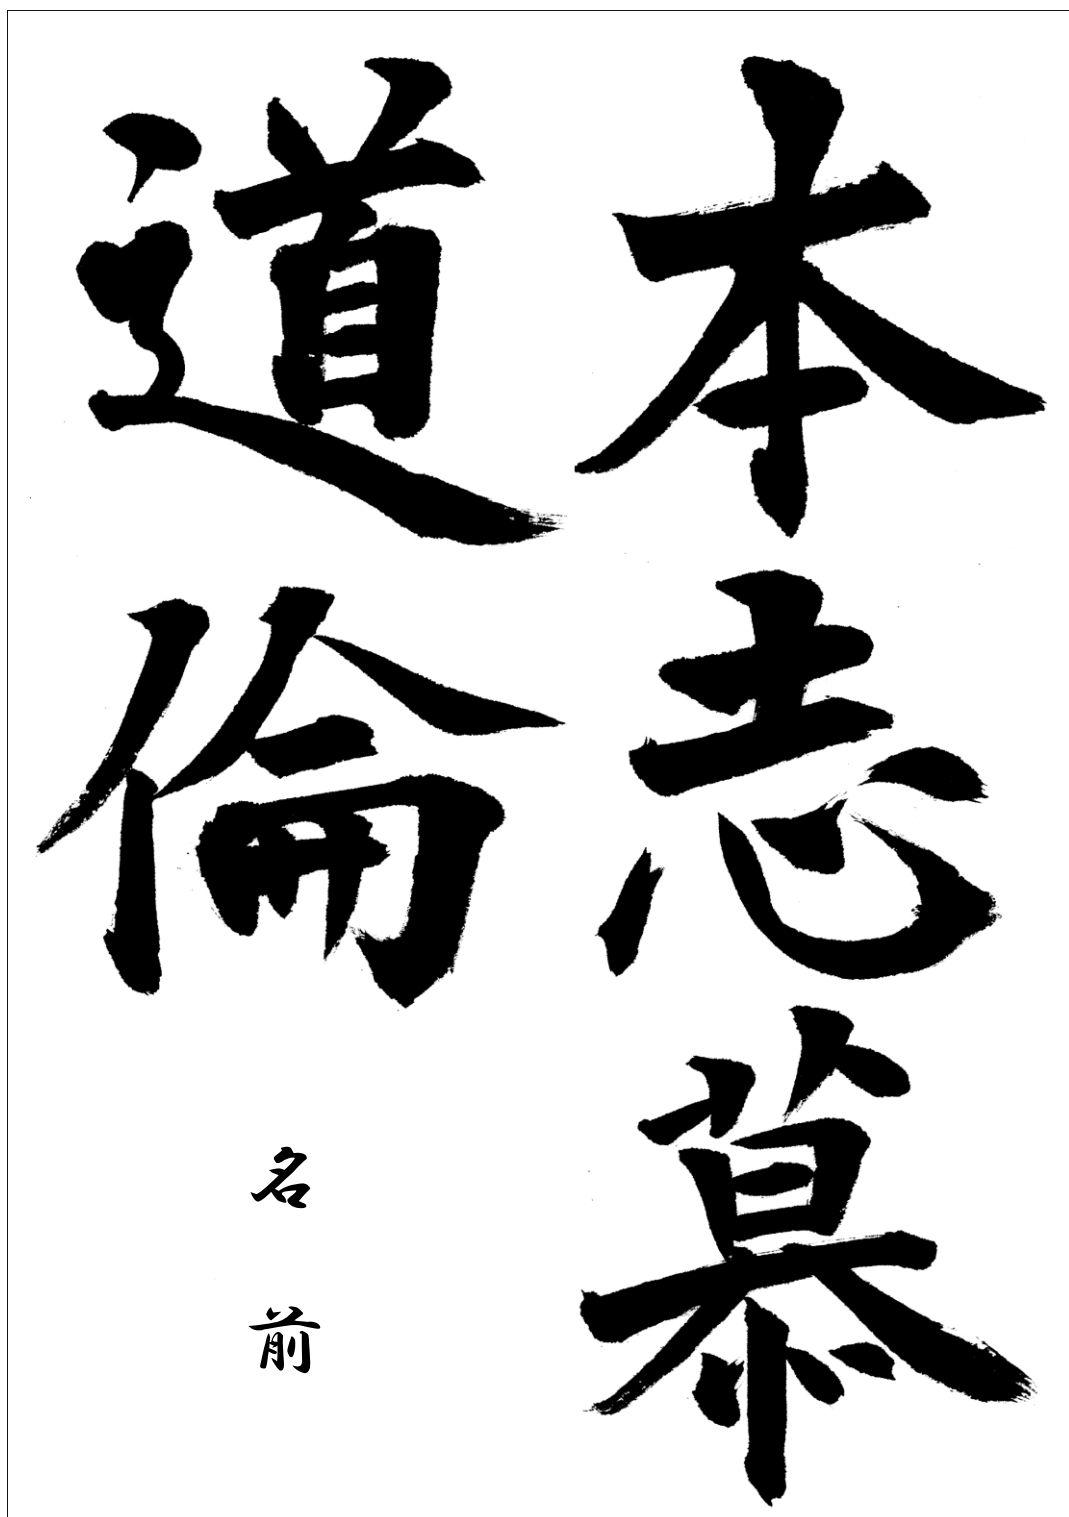 本志慕
道倫
名前